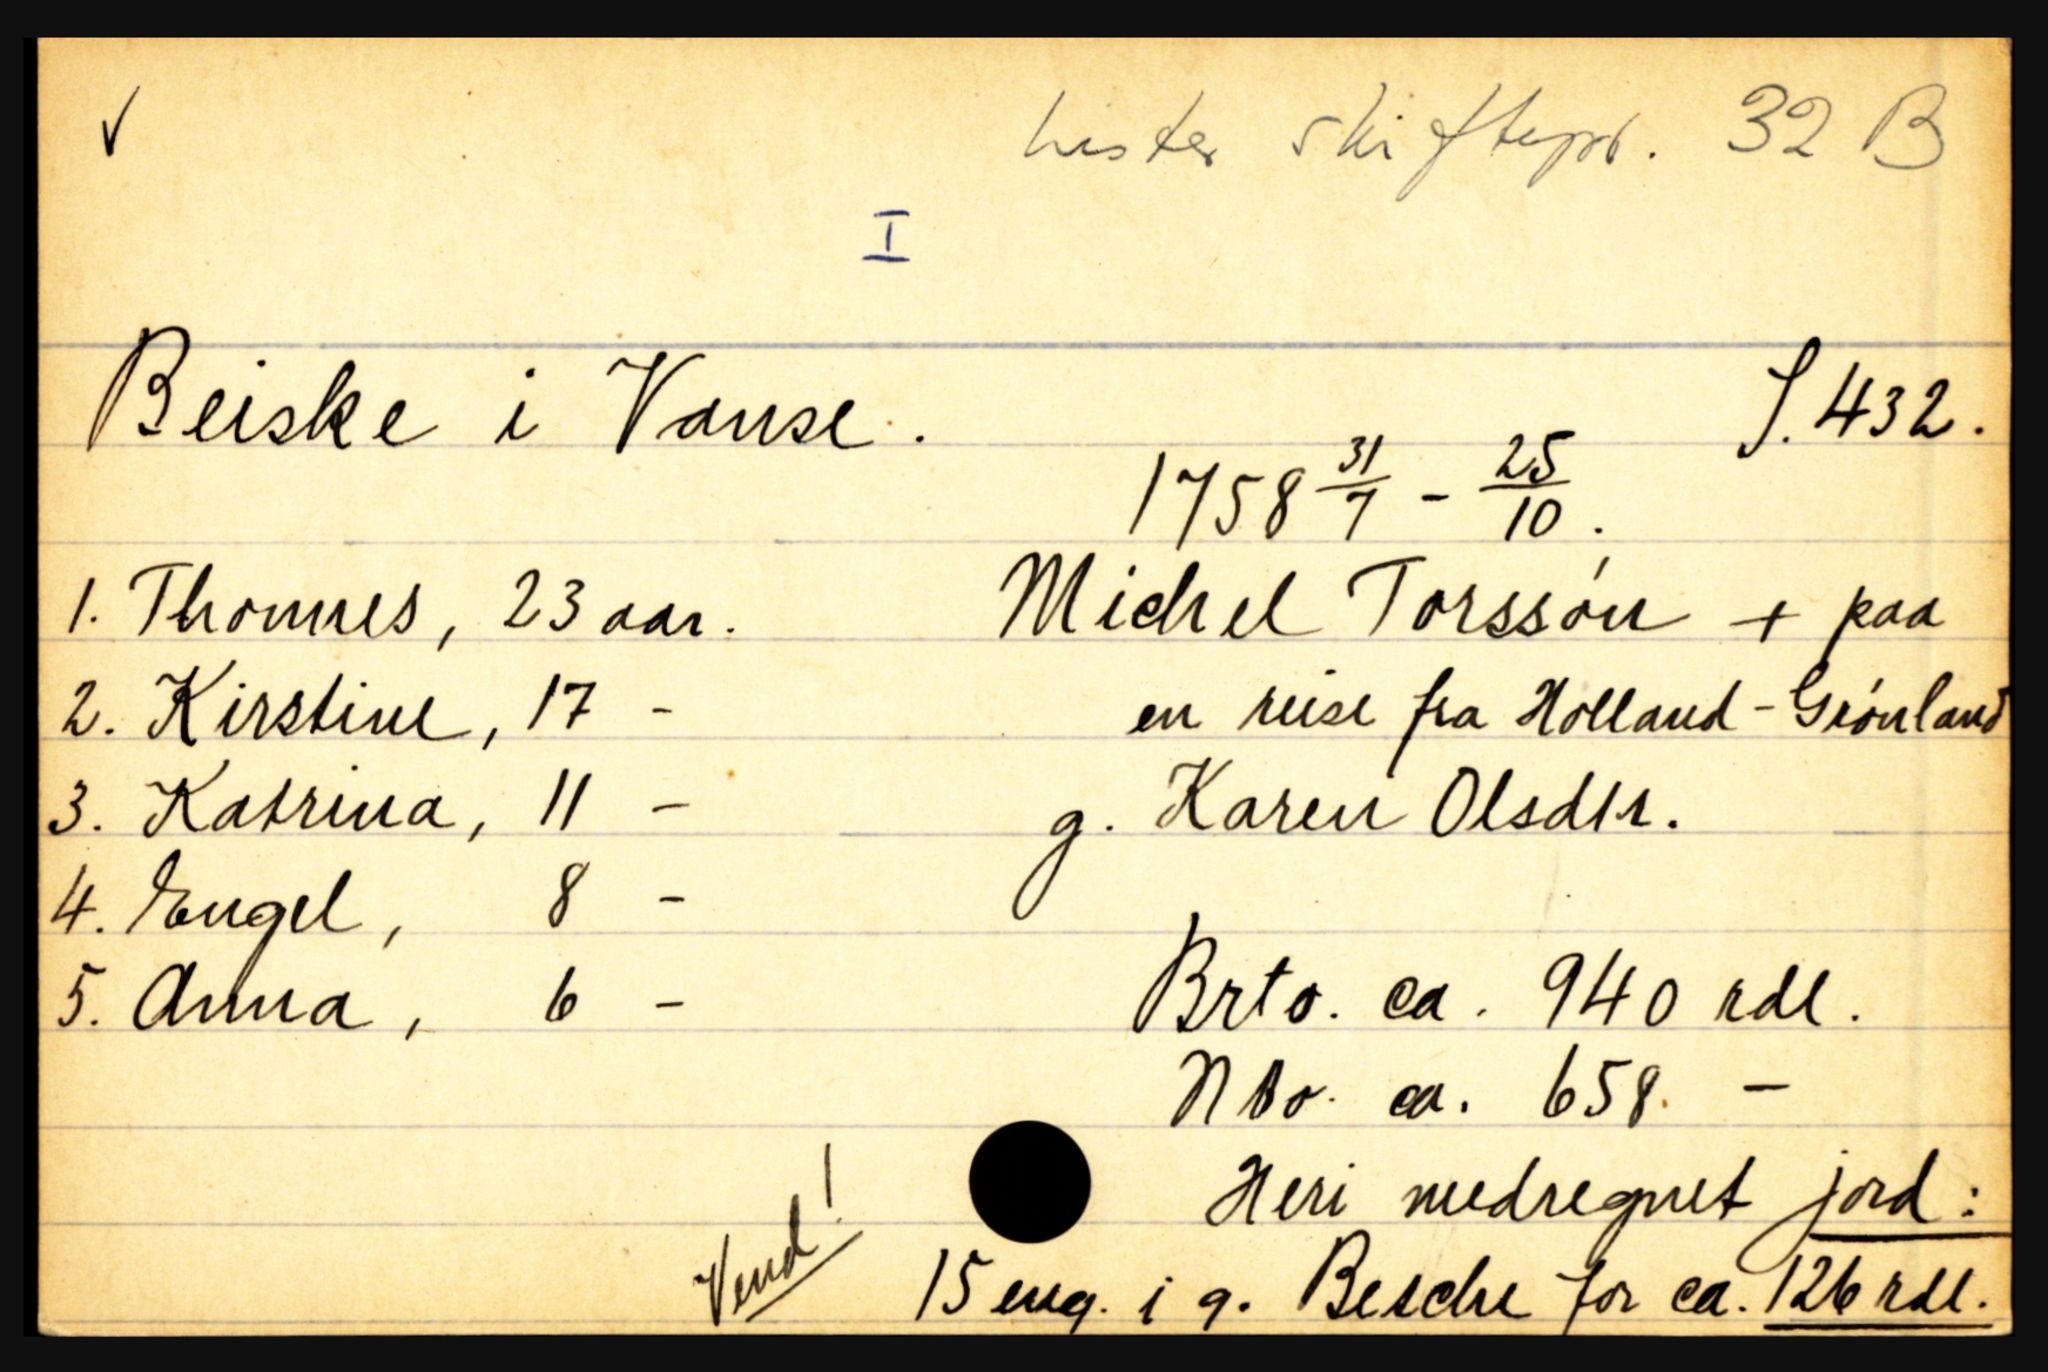 ✓
Lister skiftepr. 32 B
I
Beiske i Vanse. S. 432.
1758 31/7 - 25/10.
1. Thomes, 23 aar.
2. Kirstine, 17 -
3. Katrina, 11 -
4. Engel, 8 -
5. Anna, 6 -
Michel Torssón + paa
en reise fra Holland - Grónland
g. Karen Olsdtr.
Brto. ca. 940 rdl.
Nto. ca. 658 -
Heri medregnet jord:
15 eng. i g. Besche for ca. 126 rdl.
Vend!